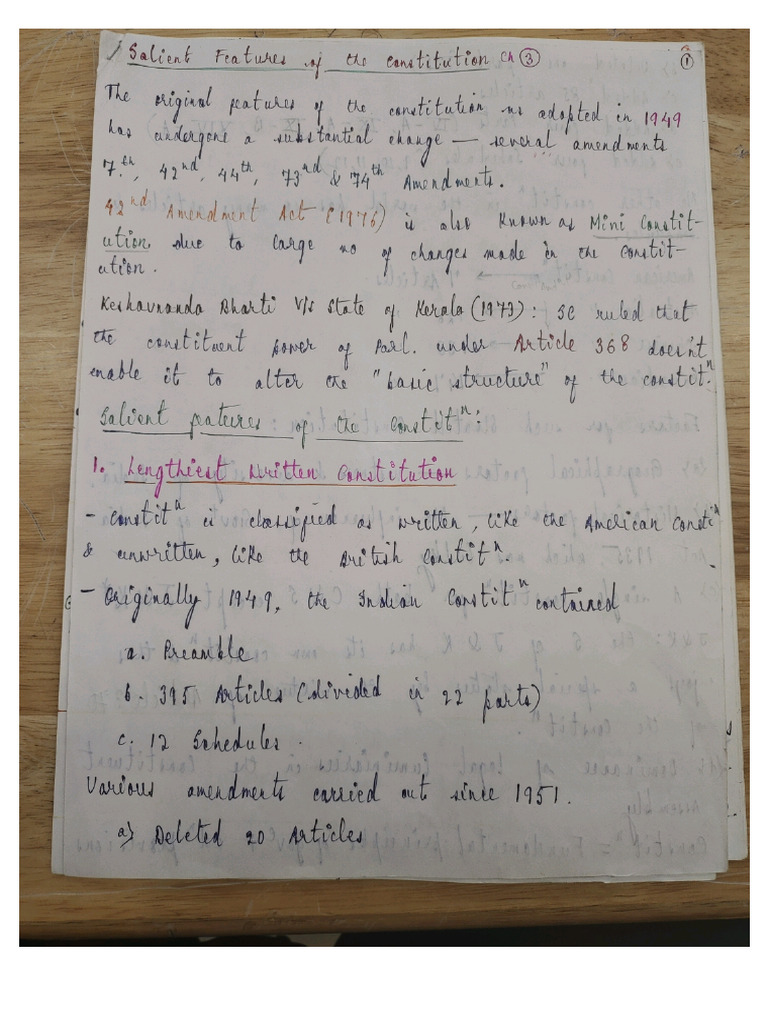 Salient Features of the Constitution Ch 3
1
The original features of the constitution as adopted in 1949
has undergone a substantial change — several amendments
7th, 42nd, 44th, 73rd & 74th Amendments.
42nd Amendment Act (1976) is also known as Mini Constit-
ution due to large no of changes made in the Constit-
ution.
Keshavnanda Bharti V/s State of Kerala (1973): SC ruled that
the constituent power of Parl. under Article 368 doesn't
enable it to alter the "basic structure" of the constitn.
Salient features of the Constitn:
1. Lengthiest Written Constitution
- Constitn is classified as written, like the American Constitn
& unwritten, like the British Constitn.
- Originally 1949, the Indian Constitn contained
a. Preamble
b. 395 Articles (divided in 22 parts)
c. 12 Schedules.
Various amendments carried out since 1951.
a) Deleted 20 Articles